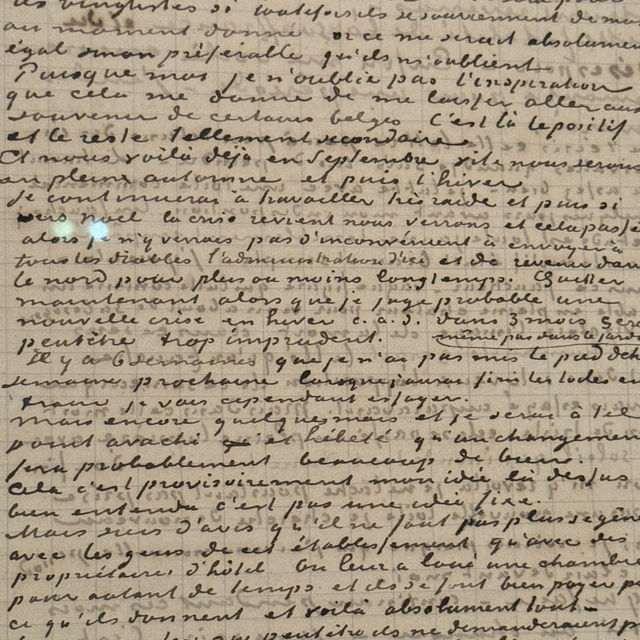 les vingtistes si toutefois ils se souviennent de moi
au moment donné où ce me serait absolument
égal sinon préférable qu'ils m'oublient
Puisque moi je n'oublie pas l'inspiration
que cela me donne de me laisser aller aux
souvenir de certains belges C'est là le positif
et le reste tellement secondaire
Et nous voilà déjà en Septembre, vite nous serons
au pleine automne et puis l'hiver
Je continuerai à travailler très raide et puis si
vers noël la crise revient nous verrons et cela passé
alors je n'y verrais pas d'inconvénient à envoyer à
tous les diables l'administration d'ici et de revenir dans
le nord pour plus ou moins longtemps. Quitter
maintenant alors que je juge probable une
nouvelle crise en hiver c.à.d. dans 3 mois serait
peutêtre trop imprudent.
Il y a 6 semaines que je n'ai pas mis le pied deh
même pas dans le jardin
semaine prochaine lorsque j'aurai fini les toiles en
train je vais cependant essayer.
Mais encore quelques mois et je serai à tel
point avachi et hébété qu'un changement
fera probablement beaucoup de bien.
Cela c'est provisoirement mon idée là dessus
bien entendu c'est pas une idée fixe.
Mais suis d'avis qu'il ne faut pas plus se gêner
avec les gens de cet établissement qu'avec des
propriétaires d'hôtel On leur a loué une chambre
pour autant de temps et ils se font bien payer pour
ce qu'ils donnent et voilà absolument tout
peutêtre ils ne demanderaient